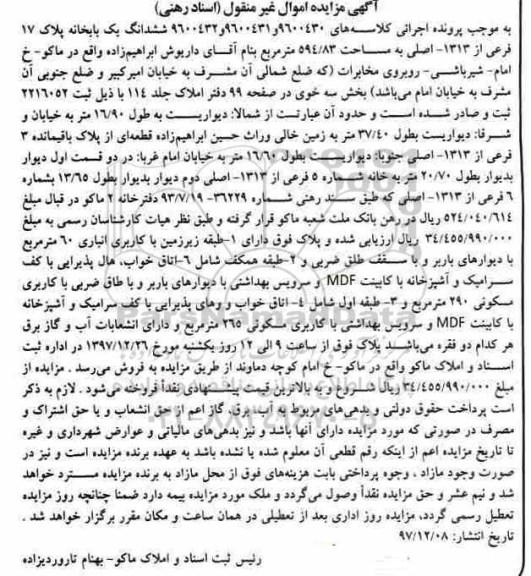 آگهی مزایده اموال غیر منقول (اسناد رهنی)
به موجب پرونده اجرائی کلاسه‌های ۹۶۰۰۴۳۰و۹۶۰۰۴۳۱و۹۶۰۰۴۳۲ ششدانگ یک بابخانه پلاک ۱۷
فرعی از ۱۳۱۳- اصلی به مساحت ۵۹۴/۸۳ مترمربع بنام آقای داریوش ابراهیم‌زاده واقع در ماکو- خ
امام- شیرباشی- روبروی مخابرات (که ضلع شمالی آن مشرف به خیابان امیرکبیر و ضلع جنوبی آن
مشرف به خیابان امام می‌باشد) بخش سه خوی در صفحه ۹۹ دفتر املاک جلد ۱۱۴ با ذیل ثبت ۲۲۱۶۰۵۲
ثبت و صادر شده است و حدود آن عبارتست از شمالا: دیواریست به طول ۱۶/۹۰ متر به خیابان و
شرقا: دیواریست بطول ۳۷/۴۰ متر به زمین خالی وراث حسین ابراهیم‌زاده قطعه‌ای از پلاک باقیمانده ۳
فرعی از ۱۳۱۳- اصلی جنوبا: دیواریست بطول ۱۶/۶۰ متر به خیابان امام غربا: در دو قسمت اول دیوار
بدیوار بطول ۲۰/۷۰ متر به خانه شماره ۵ فرعی از ۱۳۱۳- اصلی دوم دیوار بدیوار بطول ۱۳/۶۵ بشماره
۶ فرعی از ۱۳۱۳- اصلی که طبق سند رهنی شماره ۳۶۲۲۹- ۹۳/۷/۱۹ دفترخانه ۲ ماکو در قبال مبلغ
۵۲۴/۰۴۰/۶۱۴ ریال در رهن بانک ملت شعبه ماکو قرار گرفته و طبق نظر هیات کارشناسان رسمی به مبلغ
۳۴/۴۵۵/۹۹۰/۰۰۰ ریال ارزیابی شده و پلاک فوق دارای ۱-طبقه زیرزمین با کاربری انباری ۶۰ مترمربع
با دیوارهای باربر و با سقف طلق ضربی و ۲-طبقه همکف شامل ۶-اتاق خواب، هال پذیرایی با کف
سرامیک و آشپزخانه با کابینت MDF و سرویس بهداشتی با دیوارهای باربر و با طاق ضربی با کاربری
مسکونی ۲۹۰ مترمربع و ۳- طبقه اول شامل ۴- اتاق خواب و وهای پذیرایی با کف سرامیک و آشپزخانه
با کابینت MDF و سرویس بهداشتی با کاربری مسکونی ۲۶۵ مترمربع و دارای انشعابات آب و گاز برق
هر کدام دو فقره می‌باشند پلاک فوق از ساعت ۹ الی ۱۲ روز یکشنبه مورخ ۱۳۹۷/۱۲/۲۶ در اداره ثبت
اسناد و املاک ماکو واقع در ماکو- خ امام کوچه دماوند از طریق مزایده به فروش می‌رسد . مزایده از
مبلغ ۳۴/۴۵۵/۹۹۰/۰۰۰ ریال شروع و به بالاترین قیمت پیشنهادی نقداً فروخته می‌شود . لازم به ذکر
است پرداخت حقوق دولتی و بدهی‌های مربوط به آب، برق، گاز اعم از حق انشعاب و یا حق اشتراک و
مصرف در صورتی که مورد مزایده دارای آنها باشد و نیز بدهی‌های مالیاتی و عوارض شهرداری و غیره
تا تاریخ مزایده اعم از اینکه رقم قطعی آن معلوم شده یا نشده باشد به عهده برنده مزایده است و نیز در
صورت وجود مازاد ، وجوه پرداختی بابت هزینه‌های فوق از محل مازاد به برنده مزایده مسترد خواهد
شد و نیم عشر و حق مزایده نقداً وصول می‌گردد و ملک مورد مزایده بیمه دارد ضمنا چنانچه روز مزایده
تعطیل رسمی گردد، مزایده روز اداری بعد از تعطیلی در همان ساعت و مکان مقرر برگزار خواهد شد .
تاریخ انتشار: ۹۷/۱۲/۰۸
رئیس ثبت اسناد و املاک ماکو- بهنام تاروردیزاده